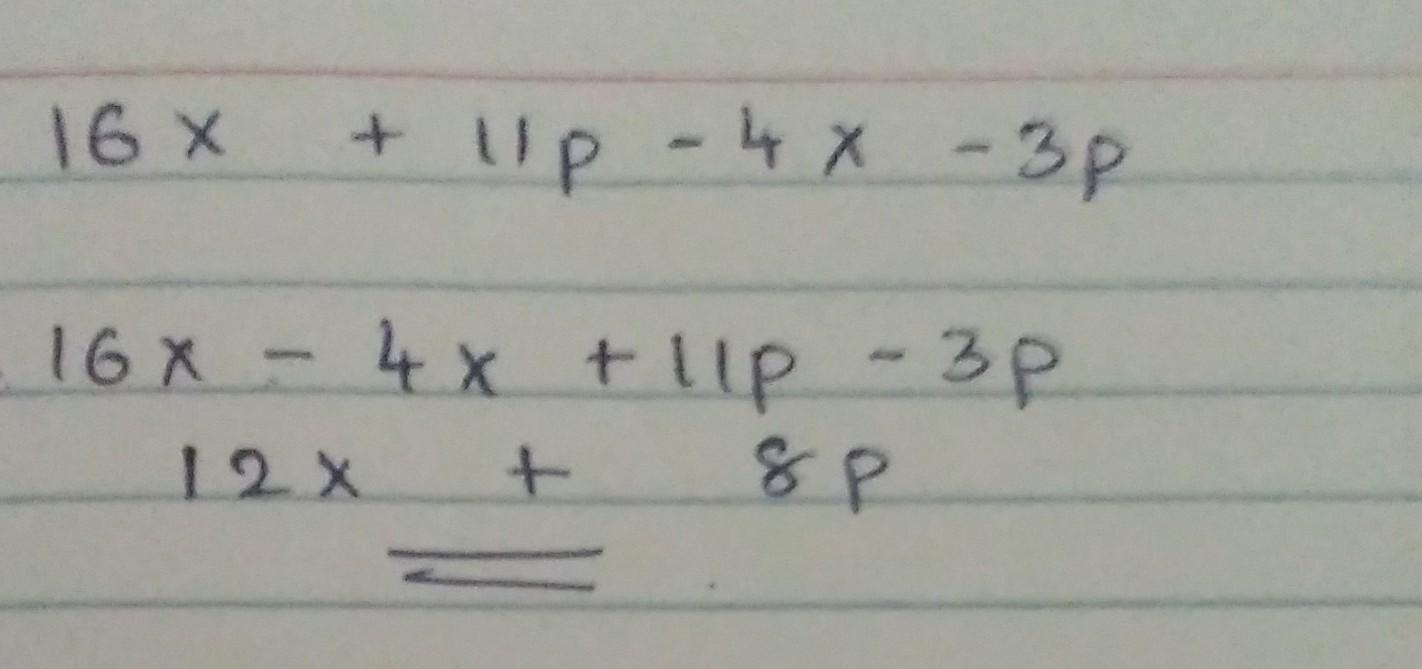 16x + 11p - 4x - 3p
16x - 4x + 11p - 3p
12x + 8p